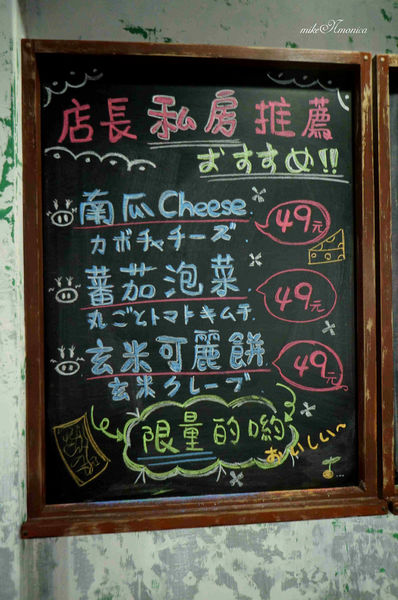 mike&monica
店長 私房 推薦
おすすめ!!
南瓜 Cheese 49元
カボチャチーズ
蕃茄泡菜 49元
丸ごとトマトキムチ
玄米可麗餅 49元
玄米クレープ
限量的喲
おいしい~